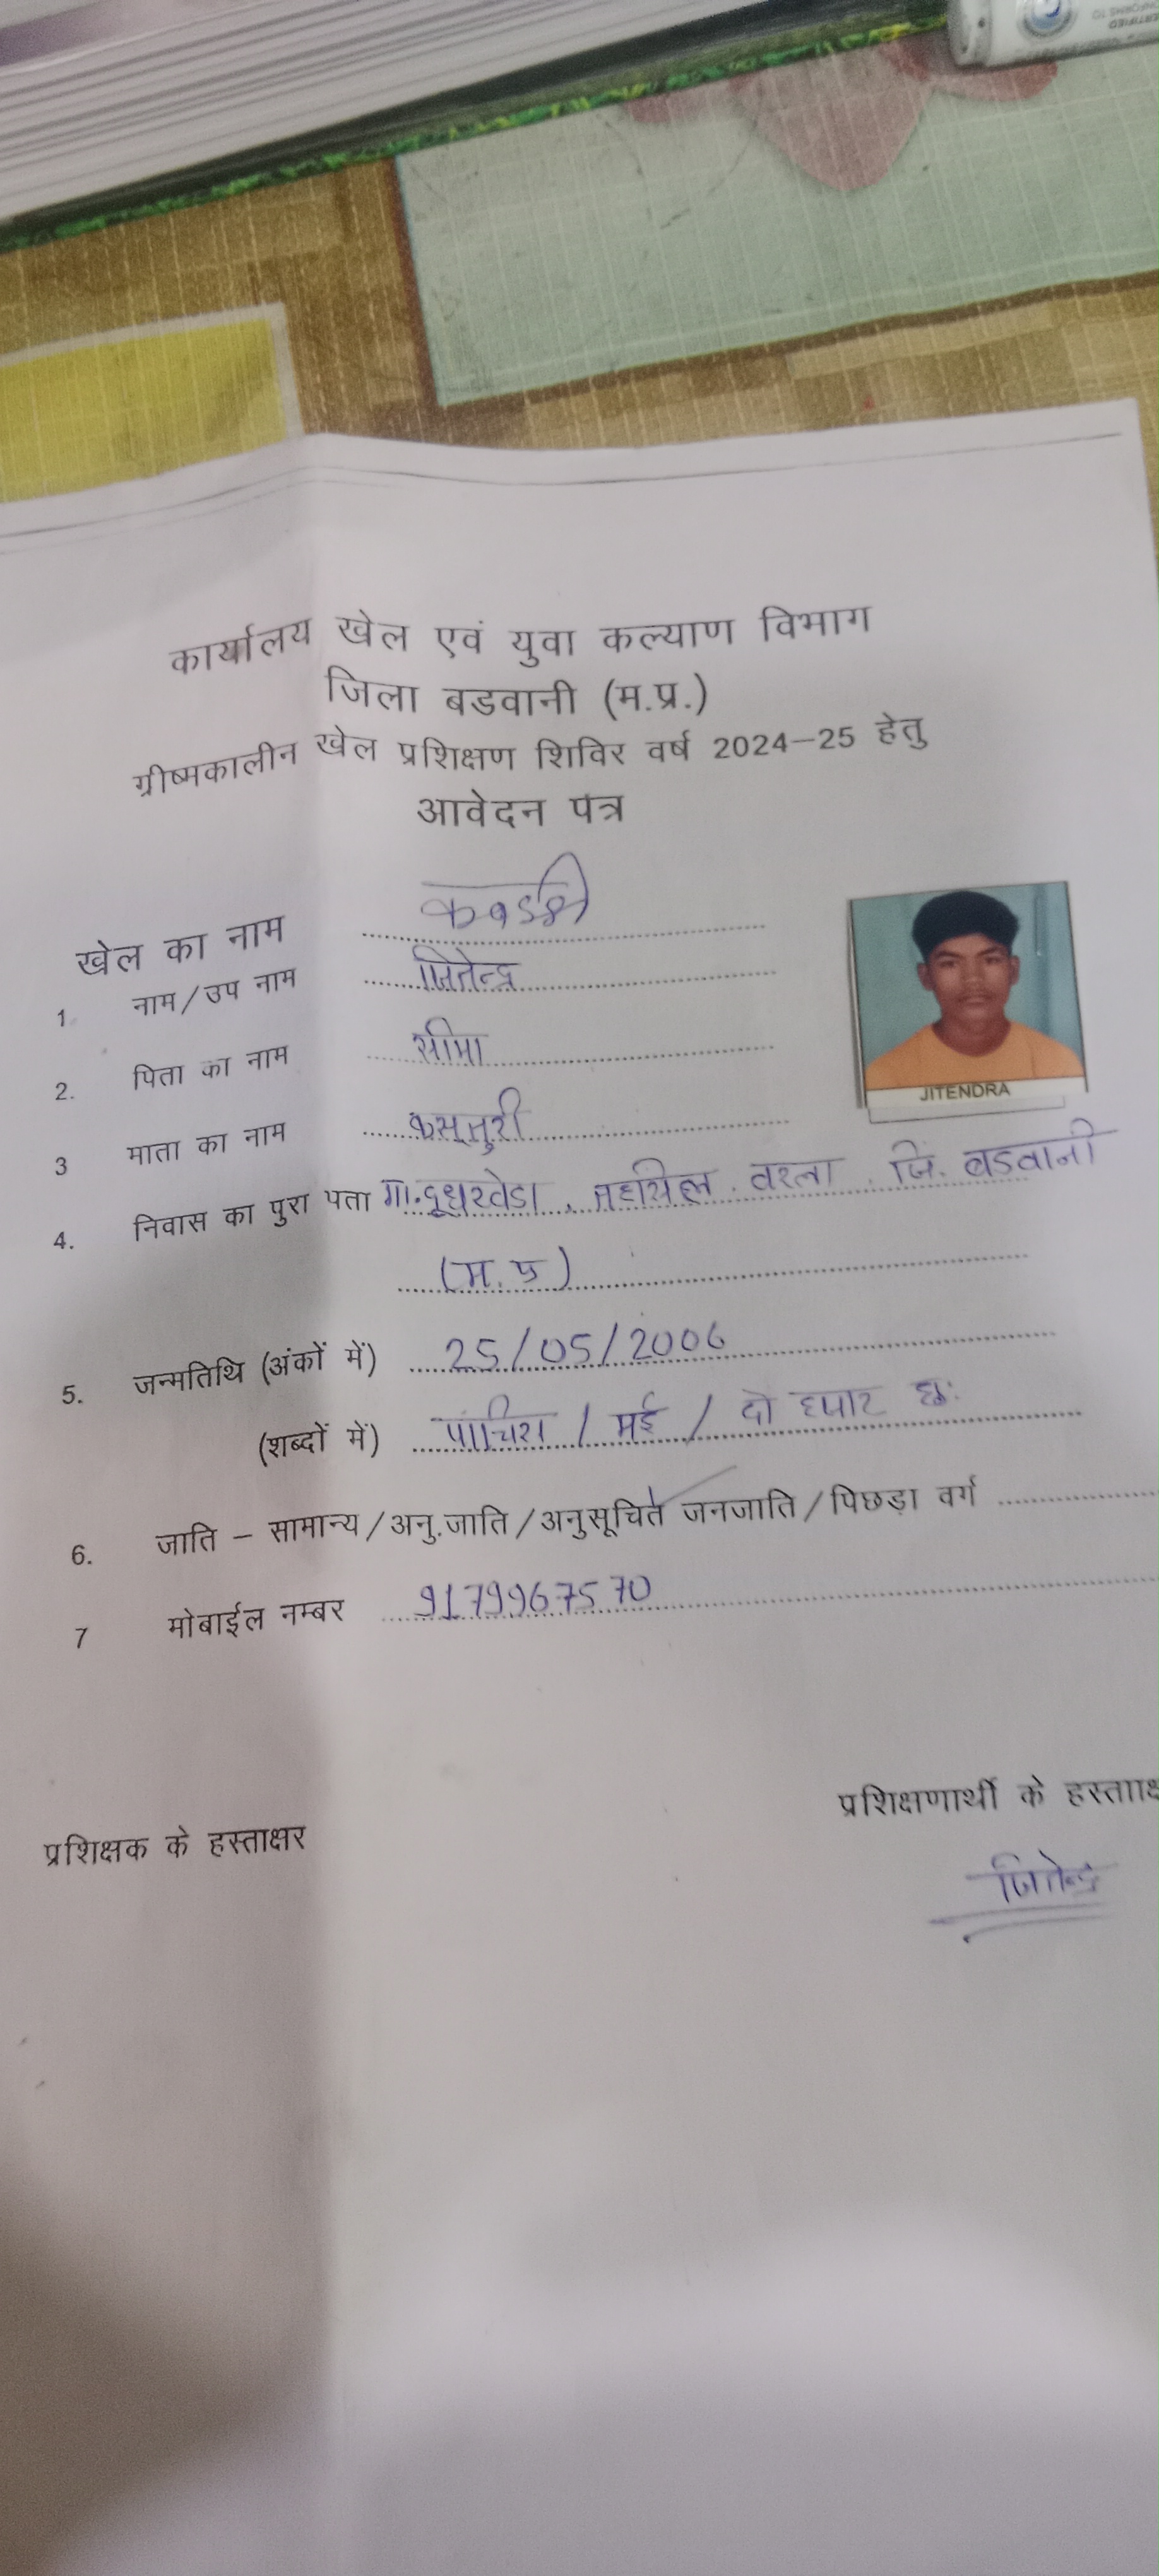 कार्यालय खेल एवं युवा कल्याण विभाग
जिला बडवानी (म.प्र.)
ग्रीष्मकालीन खेल प्रशिक्षण शिविर वर्ष 2024–25 हेतु
आवेदन पत्र
खेल का नाम कबड्डी
1. नाम/उप नाम जितेन्द्र
JITENDRA
2. पिता का नाम सीमा
3 माता का नाम कस्तुरी
4. निवास का पुरा पता गा.दूधखेडा, तहसिल. वरला. जि. बडवानी
(म.प्र)
5. जन्मतिथि (अंकों में) 25/05/2006
(शब्दों में) / मई / दो हजार छः
6. जाति – सामान्य/अनु.जाति/अनुसूचित जनजाति/पिछड़ा वर्ग
7 मोबाईल नम्बर 9179967570
प्रशिक्षणार्थी के हस्ताक्ष
प्रशिक्षक के हस्ताक्षर
जितेन्द्र